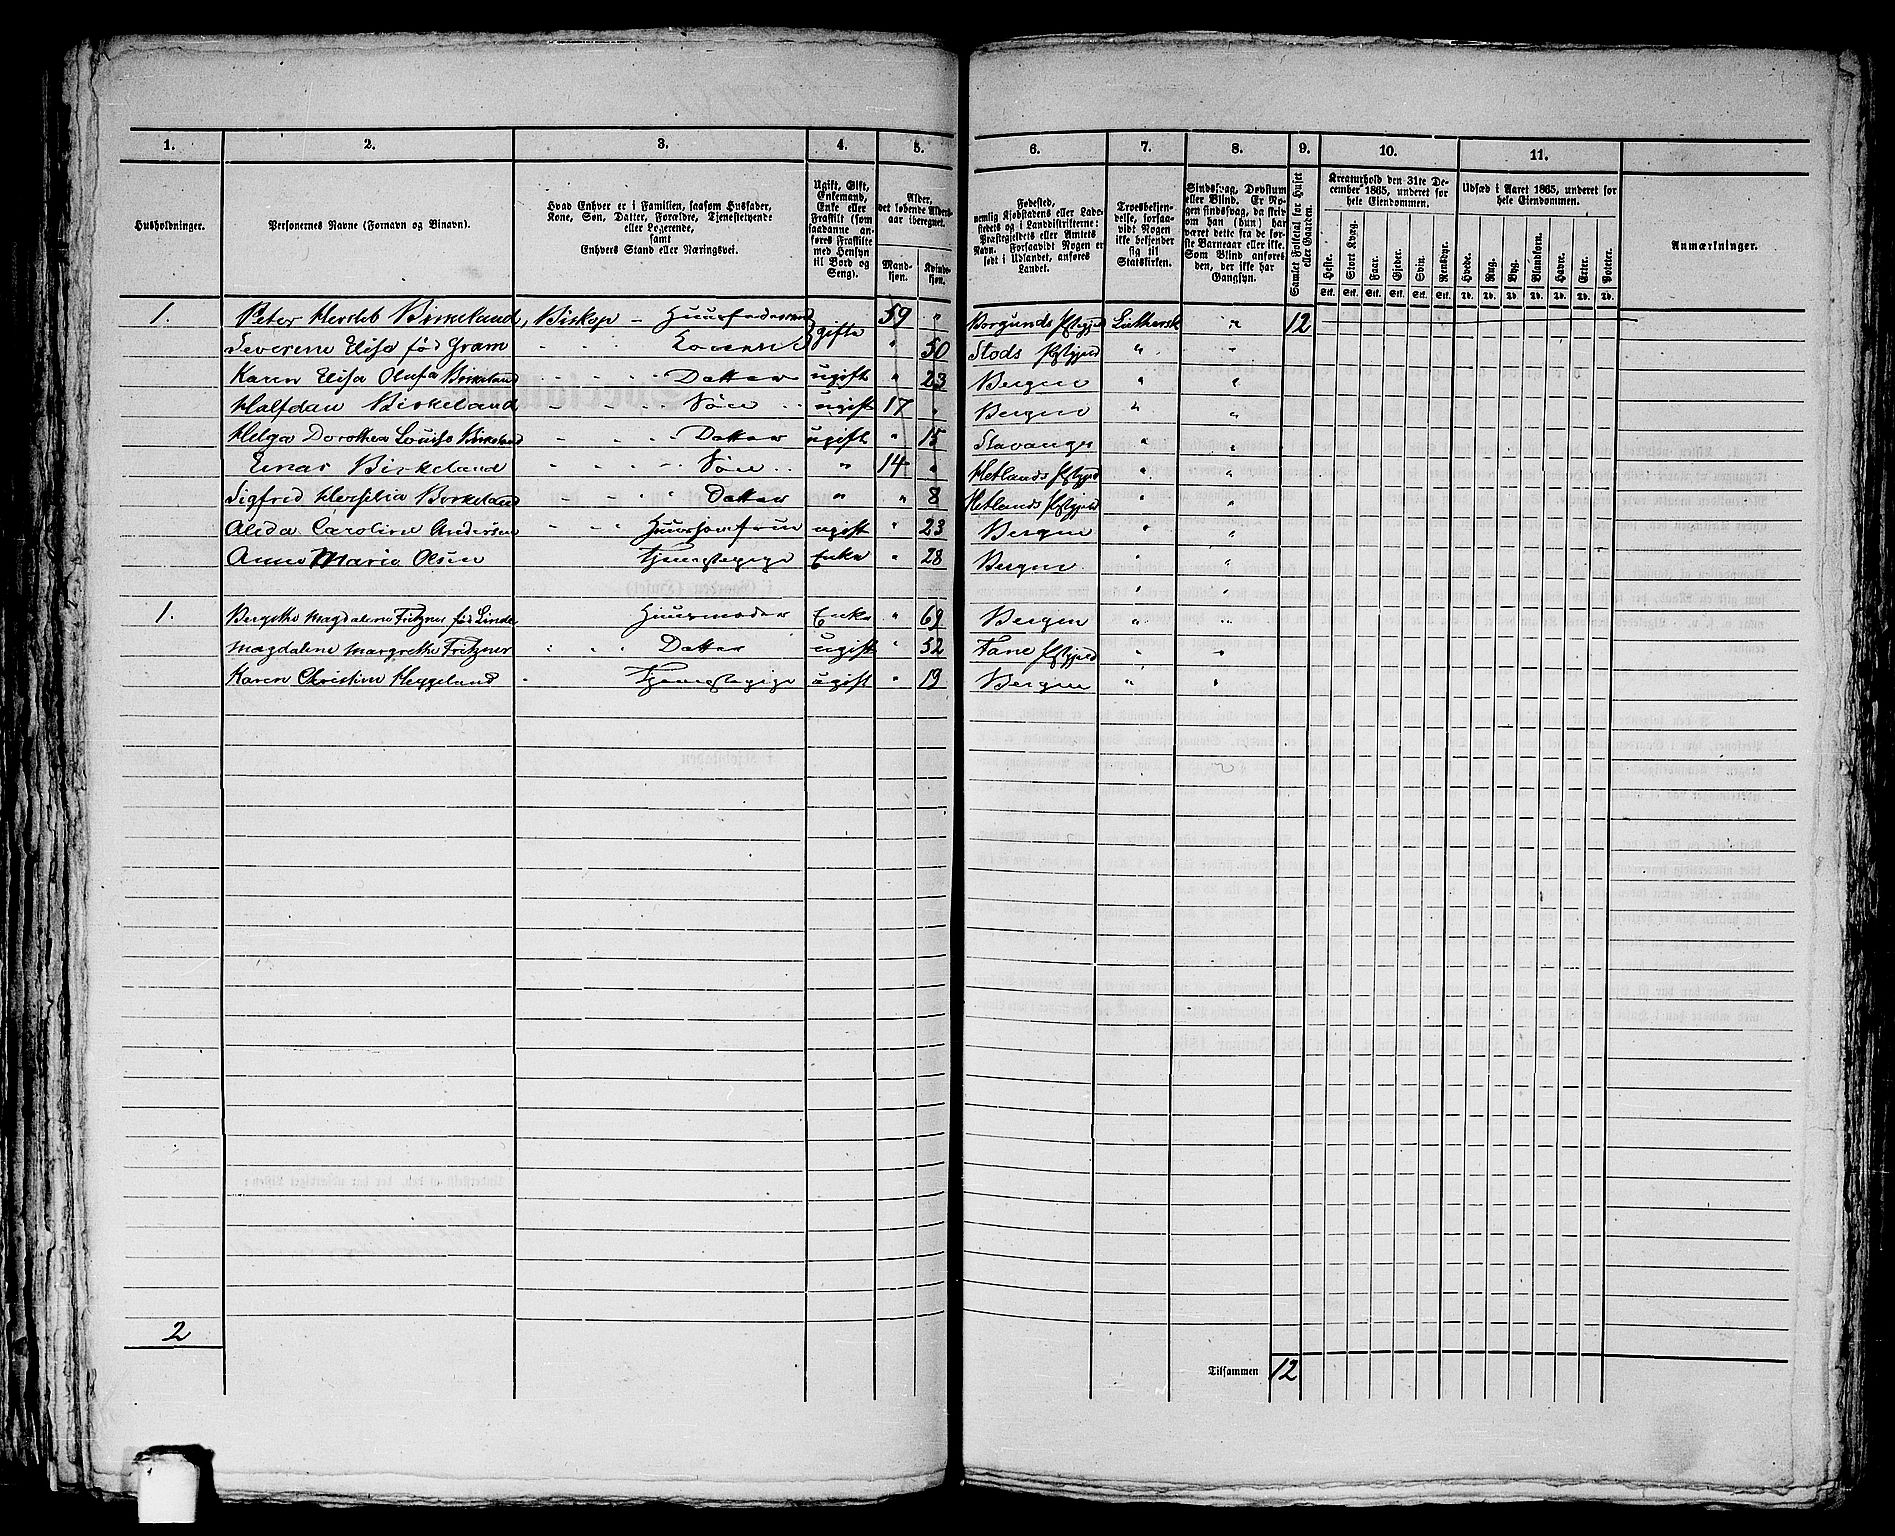 1. 2. 3. 4. 5. 6. 7. 8. 9. 10. 11.
Husholdninger.
Personernes Navne (Fornavn og Tilnavn).
Hvad Enhver er i Familien, saasom Husfader,
Kone, Søn, Datter, Forældre, Tjenestetyende
eller Logerende,
samt
Enhvers Stand eller Næringsvei.
Ugift, Gift,
Enkemand,
Enke eller
Fraskilt (som
saadanne an-
føres Fraskilte
med Hensyn
til Bord og
Seng).
Alder,
det løbende Alders-
aar iberegnet.
Mand-
kjøn.
Kvinde-
kjøn.
Fødested,
nemlig Kjøbstadens eller Lade-
stedets og i Landdistrikterne:
Præstegjeldets eller Amtets
Navn. Forsaavidt Nogen er
født i Udlandet, anføres
Landet.
Troesbekjen-
delse, forsaa-
vidt Nogen
ikke bekjender
sig til
Statskirken.
Sindssvag, Døvstum
eller Blind. Er No-
gen sindssvag, da skriv
om han (hun) har
været dette fra de før-
ste Barneaar eller ikke.
Som Blind anføres
den, der ikke har
Gangsyn.
Samlet Folketal for Huset
eller Gaarden.
Kreaturhold den 31te De-
cember 1865, underet for
hele Eiendommen.
Heste. Stort Kvæg. Faar. Gjeder. Svin. Rensdyr.
Stk. Stk. Stk. Stk. Stk. Stk.
Udsæd i Aaret 1865, underet for
hele Eiendommen.
Hvede. Rug. Byg. Blandkorn. Havre. Erter. Poteter.
Td. Td. Td. Td. Td. Td. Td.
Anmærkninger.
1. Peter Hersleb Birkeland, Biskop - Huusfader gifte 59 " Borgunds Lutherск " 12
Severine Elisa fød Gram " 50 Stods " "
Karen Elisa Olufa Birkeland Datter ugift " 23 Bergen " "
Halfdan Birkeland Søn ugift 17 " Bergen " "
Helga Dorothea Louise Birkeland Datter ugift " 15 Stavanger " "
Einar Birkeland Søn " 14 " Hetlands " "
Sigfrid Hersilia Birkeland Datter " " 8 Hetlands " "
Alida Caroline Andersen Huusjomfrue ugift " 23 Bergen " "
Anne Maria Olsen Tjenestepige Enke " 28 Bergen " "
1. Magdalene Fritzner fød Linde Huusmoder Enke " Bergen " "
Magdalene Margrethe Fritzner Datter ugift " 52 Fane " "
Karen Christine Heggeland Tjenestepige ugift " 19 Bergen " "
2
Tilsammen 12